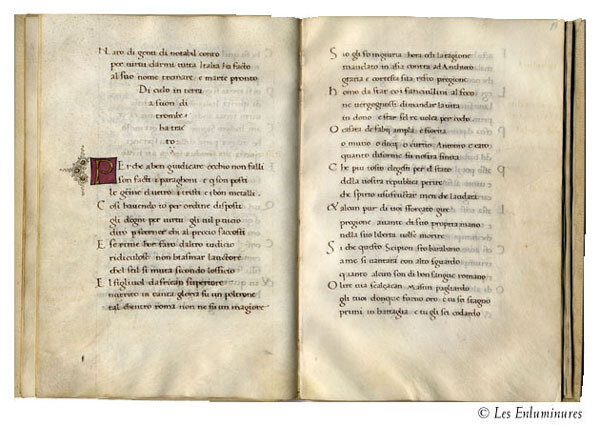 Naro di genti di notabil conto
per virtu darmi tutta Italia ha facto
al suo nome tremare e marte pronto
Di cielo in terra
a suon di
trombe
ha trac
to
PEr che aben giudicare occhio non falli
son facti i paragoni e q son posti
le geme el vetro i tristi e bon metalli
Cosi havendo to per ordine disposti
gli degni per virtu gli nel
diro piscerner chi al precio saccosti
E se rime ber faro daltro iudicio
ridiculose non biasmar lauctore
chel stil si muta secondo loffitio
El figliuol da african superiore
nutrito in tanta gloria fu un poltrone
tal dentro roma non ne fu un magiore
Sio gli fo iniuria hora odi la ragione
mandato in asia contra ad Anthioco
gratia e cortesia sita resto pregione
homo da star coi fanciullini al foco
ne vergognosse dimandar la vita
in dono e star sel re volea per coco
O casata de fabii ampla e fiorita
o mutio o decii o curtio Antenio e cato
quanto difforme fu nostra finita
Che piu tosto elegesti per el stato
della nostra republica perire
che spinto essere ultra far men che laudato
Alcun pur di voi sforzato gire
pregione avante di suo propria mano
nella sua liberta volse morire
Si che questo Scipion sto barabano
a me si vantara con alto sguardo
quanto alcun son di bon sangue romano
Oltre via scalzacan Masin pagliardo
gli tuoi donque furno oro e tu se stagno
primi in battaglia e tu gli sei codardo
© Les Enluminures